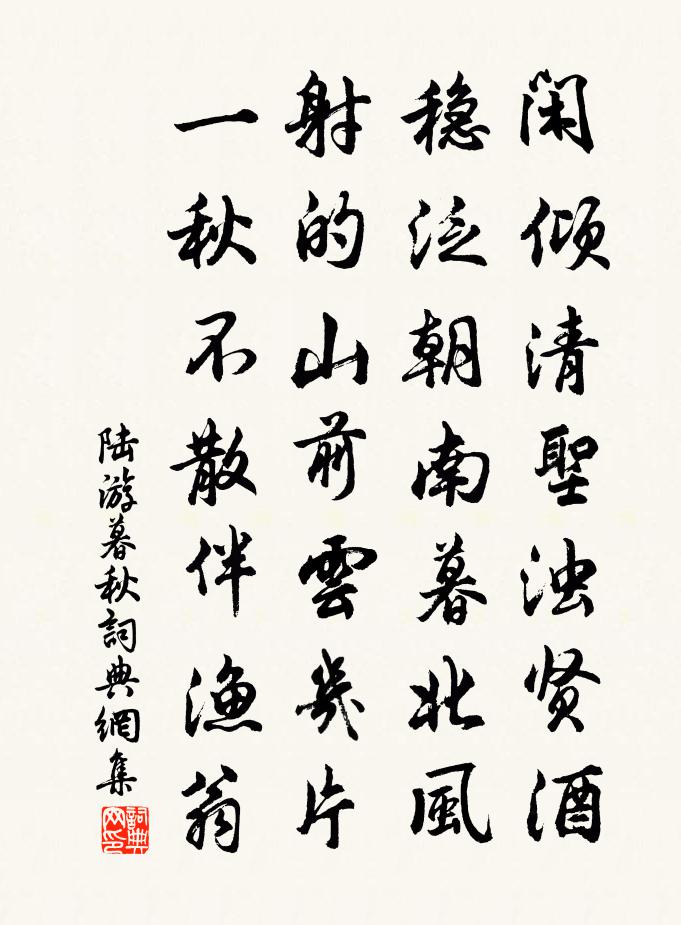 闲倾清聖浊贤酒
稳泛朝南暮北風
射的山前雲幾片
一秋不散伴渔翁
陆游暮秋詞典網集
詞典网印